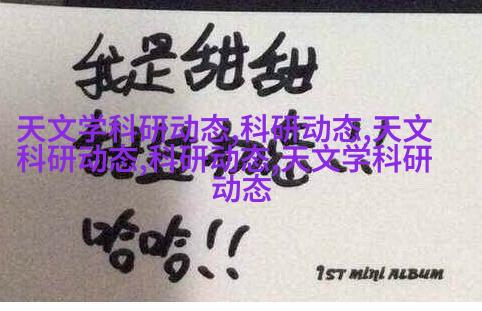 我是甜甜
天文学科研动态,科研动态,天文
科研动态,科研动态,天文学科研
动态
哈哈!!
1ST MINI ALBUM